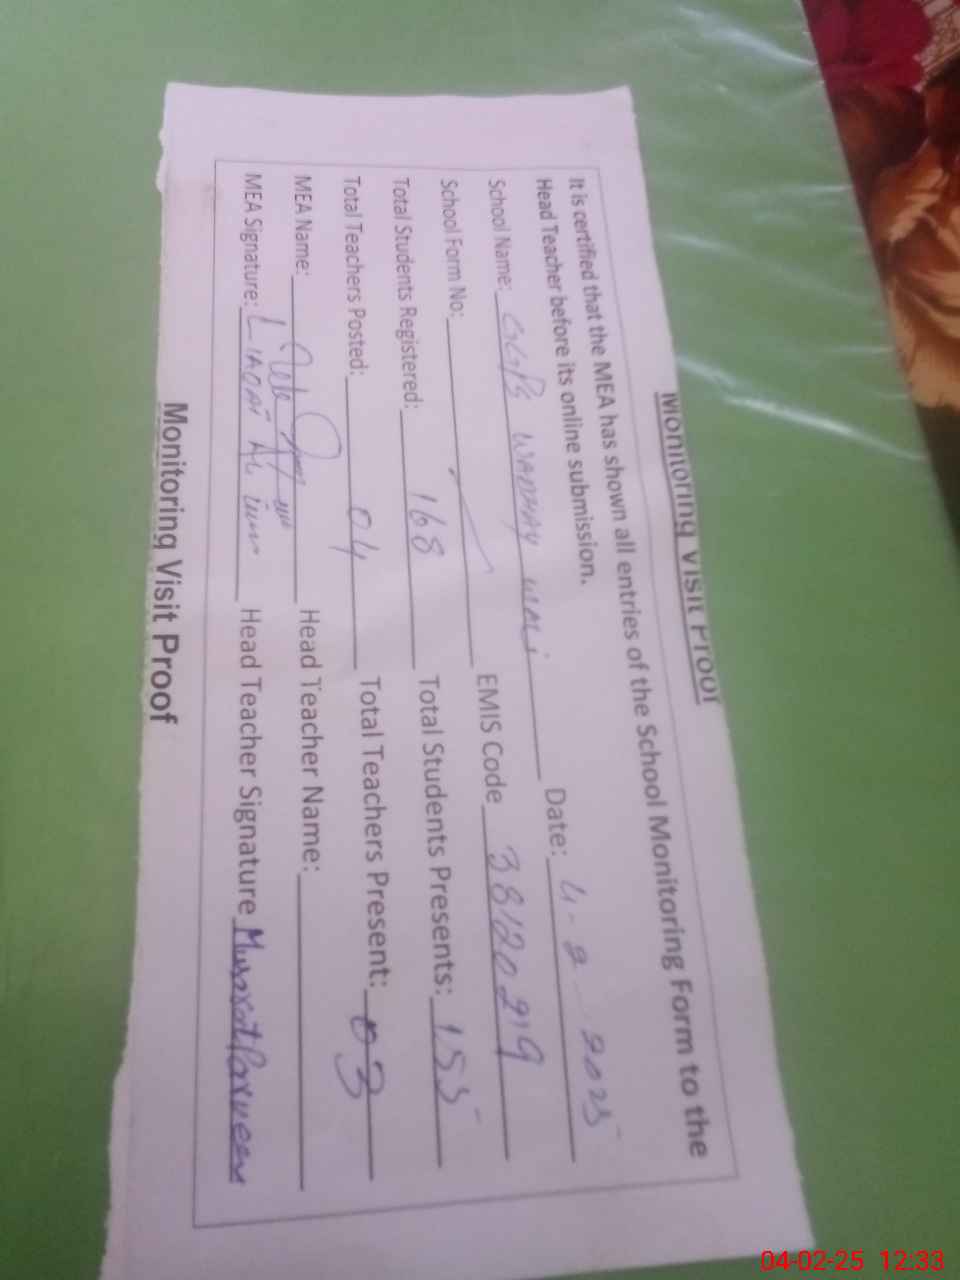 Monitoring Visit Proof
It is certified that the MEA has shown all entries of the School Monitoring Form to the
Head Teacher before its online submission.
School Name: GGPS WADHAY WALI Date: 4-2-2025
School Form No: EMIS Code 38120219
Total Students Registered: 168 Total Students Presents: 155
Total Teachers Posted: 04 Total Teachers Present: 03
MEA Name: Head Teacher Name:
MEA Signature: LIAQAT Head Teacher Signature Musarat Parveen
Monitoring Visit Proof
04-02-25 12:33